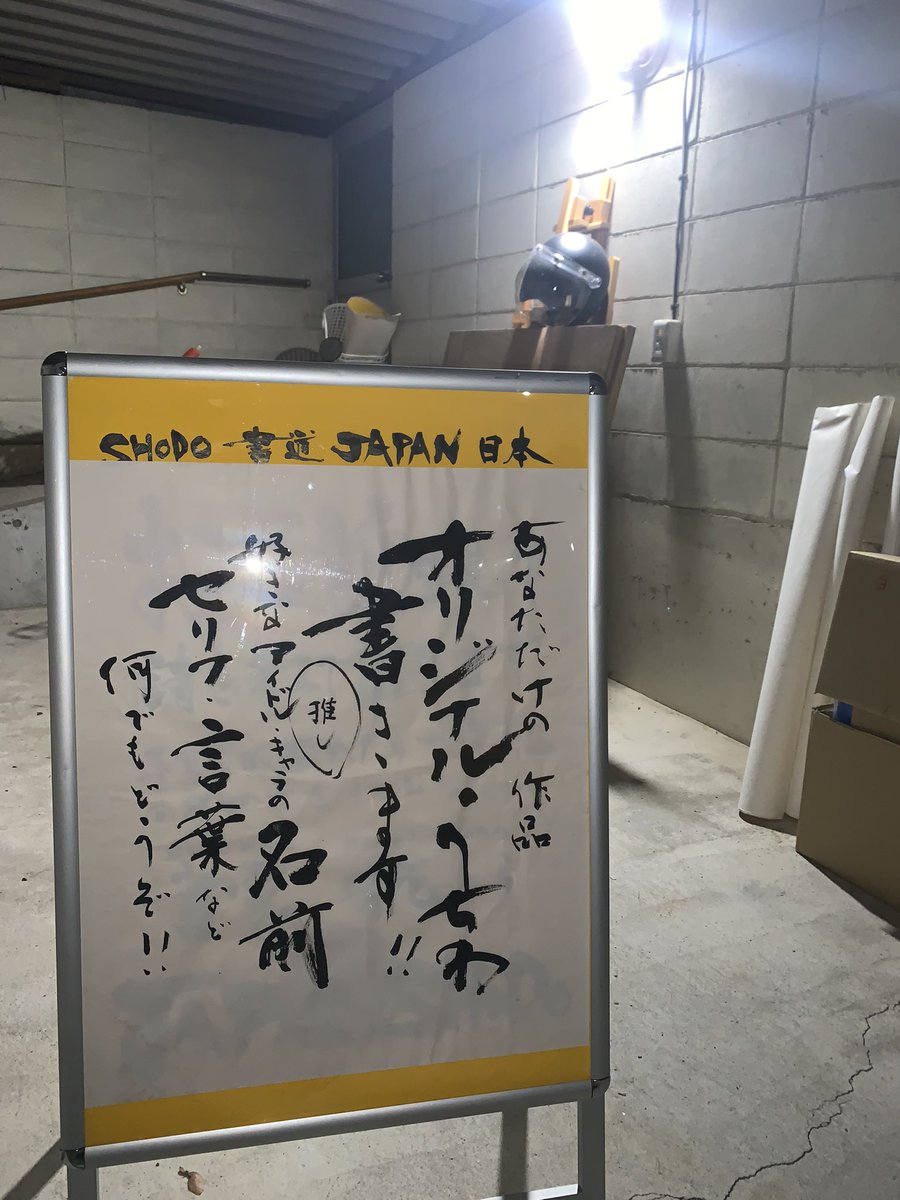 SHODO 書道 JAPAN 日本
あなただけの 作品
オリジナル・うちわ
書きます!!
推し
好きなアイドル・キャラの名前
セリフ・言葉など
何でもどうぞ!!